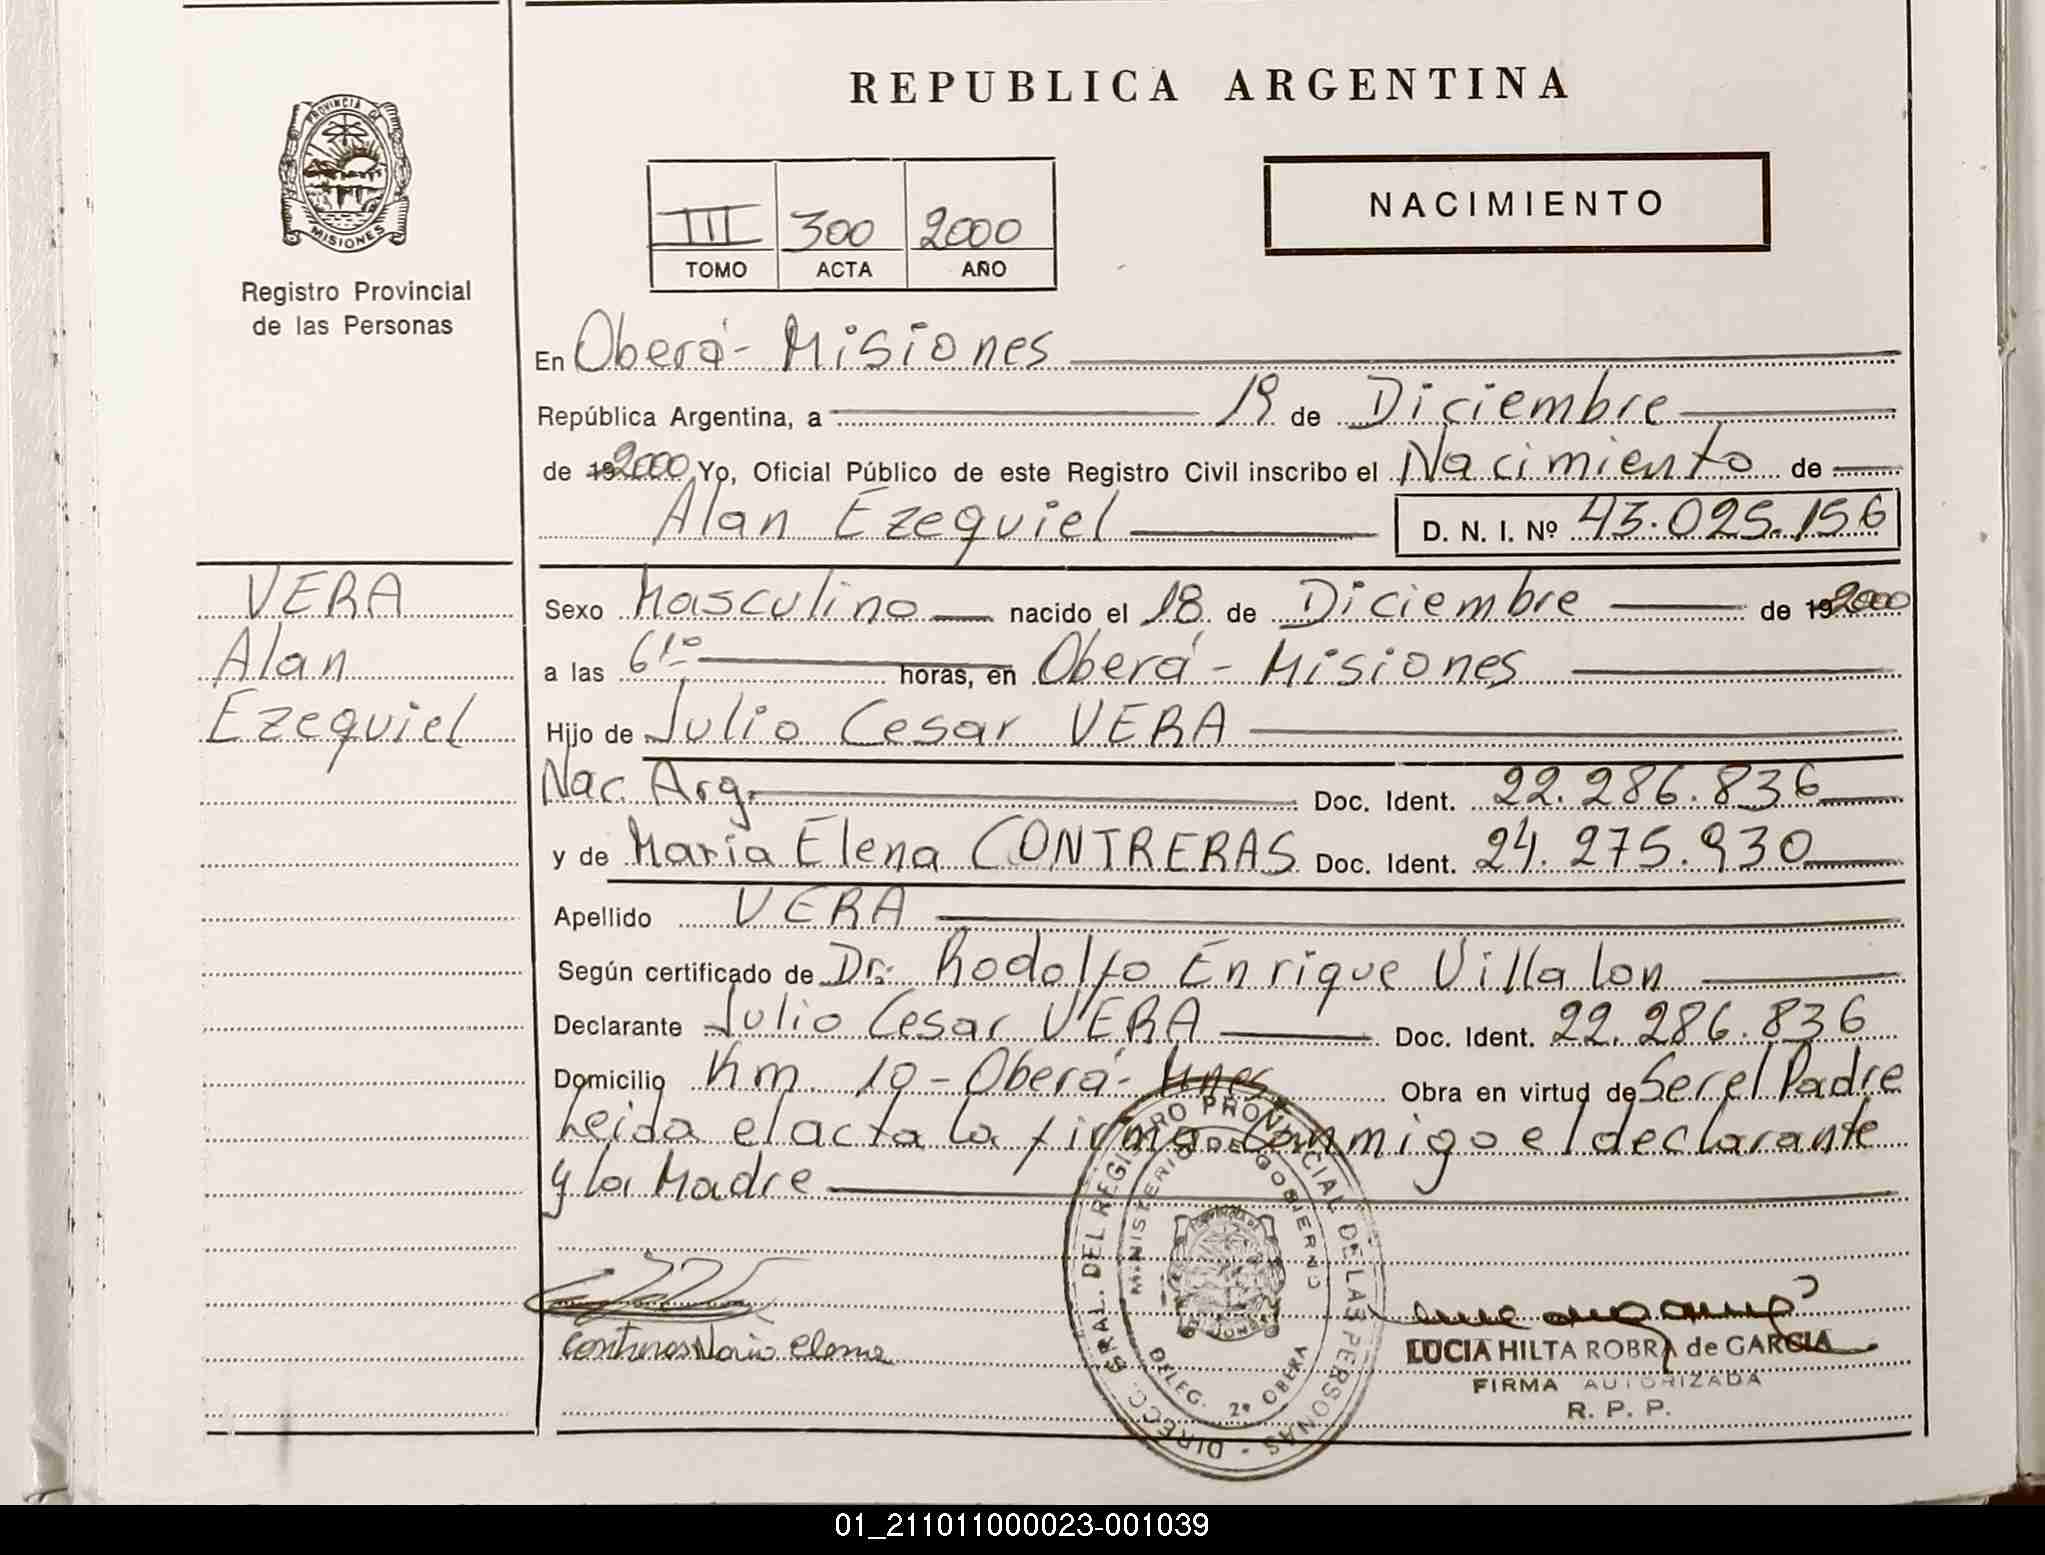 REPUBLICA ARGENTINA
PROVINCIA DE
MISIONES
Registro Provincial
de las Personas
NACIMIENTO
III 300 2000
TOMO ACTA AÑO
En Oberá - Misiones
República Argentina, a 19 de Diciembre
de 192000 Yo, Oficial Público de este Registro Civil inscribo el Nacimiento de
Alan Ezequiel D. N. I. Nº 43.025.156
VERA
Alan
Ezequiel
Sexo Masculino nacido el 18 de Diciembre de 192000
a las 6 1º horas, en Oberá - Misiones
Hijo de Julio Cesar VERA
Nac. Arg. Doc. Ident. 22.286.836
y de Maria Elena CONTRERAS Doc. Ident. 24.275.930
Apellido VERA
Según certificado de Dr. Rodolfo Enrique Villalon
Declarante Julio Cesar VERA Doc. Ident. 22.286.836
Domicilio Km. 10 - Oberá - Mnes Obra en virtud de Ser el Padre
Leida el acta la firma conmigo el declarante
y la Madre
DIRECC. GRAL. DEL REGISTRO PROVINCIAL DE LAS PERSONAS -
MINISTERIO DE GOBIERNO
DELEG. 2º OBERA
Contreras Maria Elena
LUCIA HILTA ROBRA de GARCIA
FIRMA AUTORIZADA
R. P. P.
01_211011000023-001039